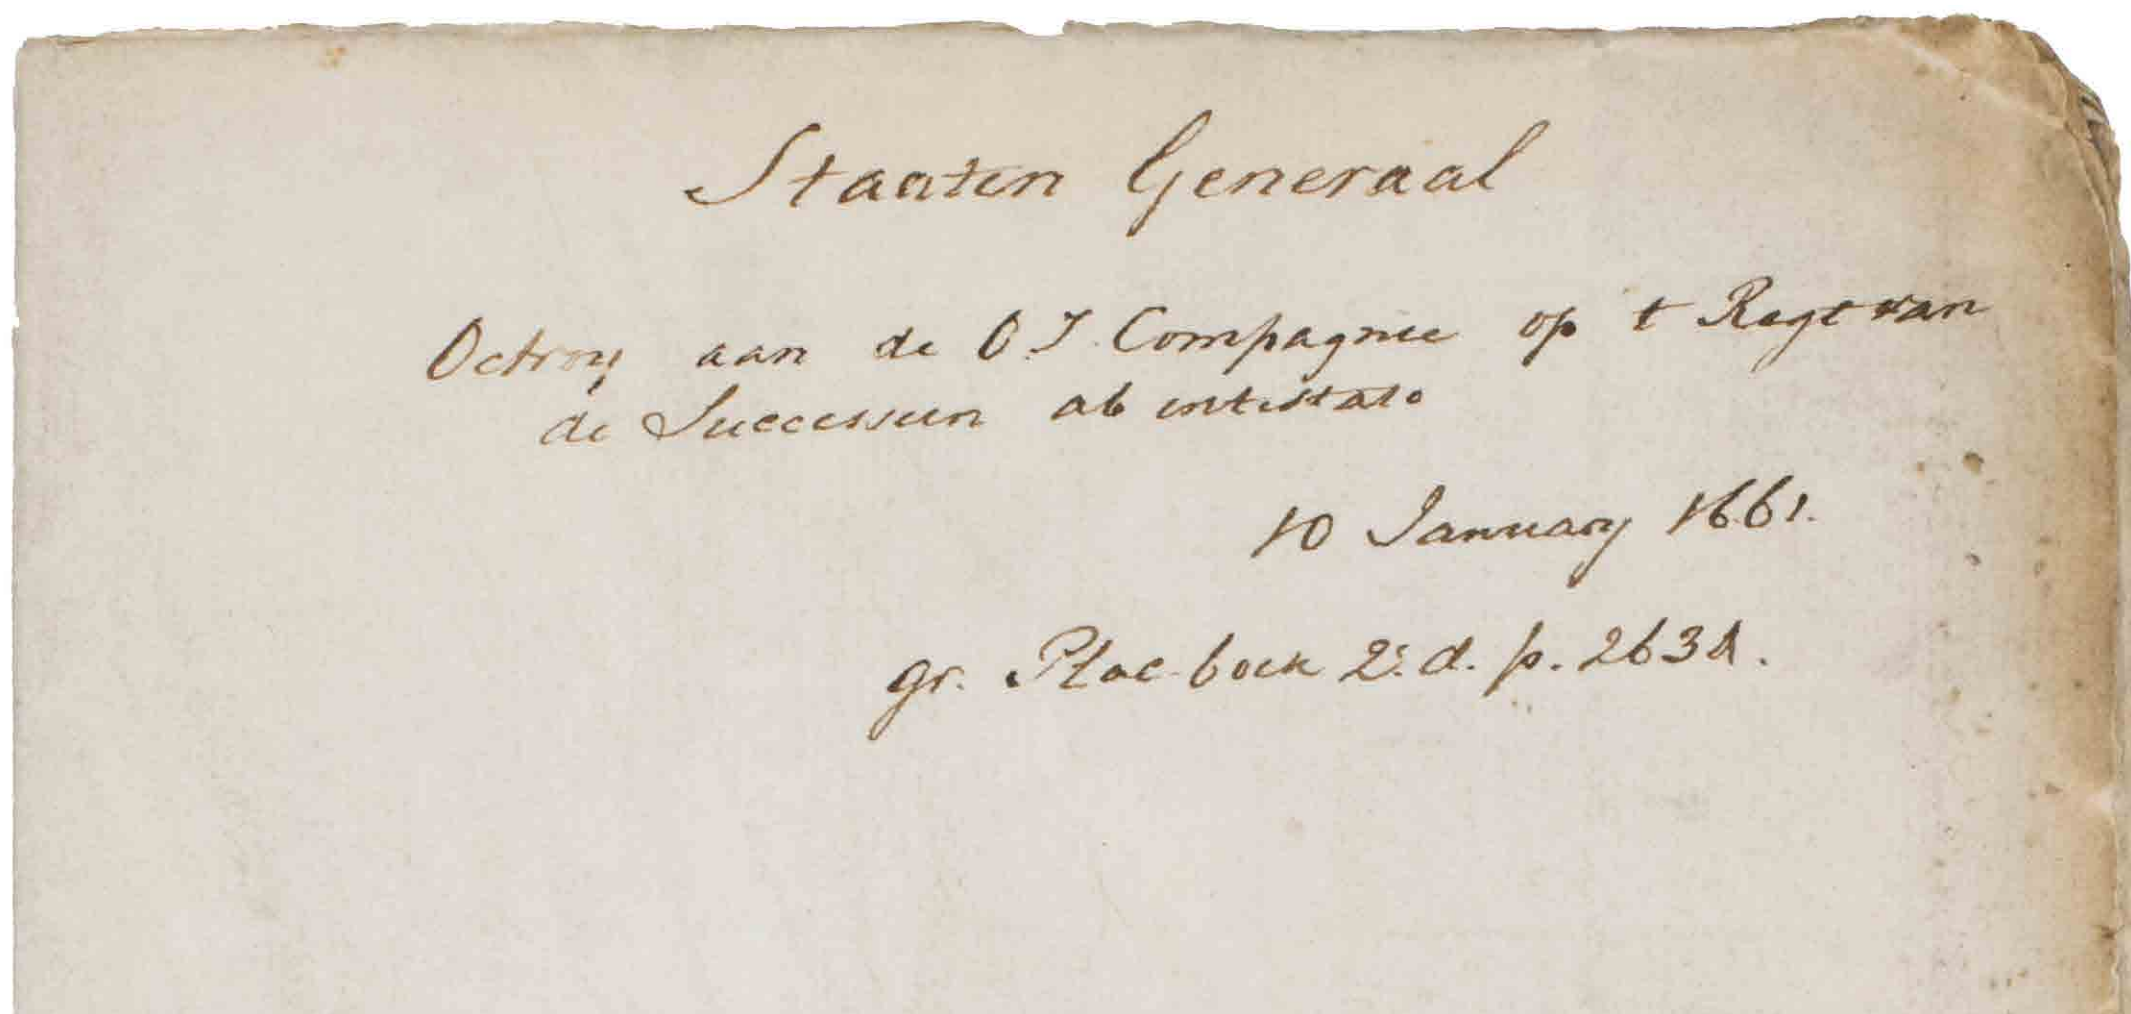 Staaten Generaal
Octroy aan de O.I. Compagnie op t Regt van
de Successien ab intestato
10 January 1661.
gr. Plac-boek 2e. d. p. 2634.